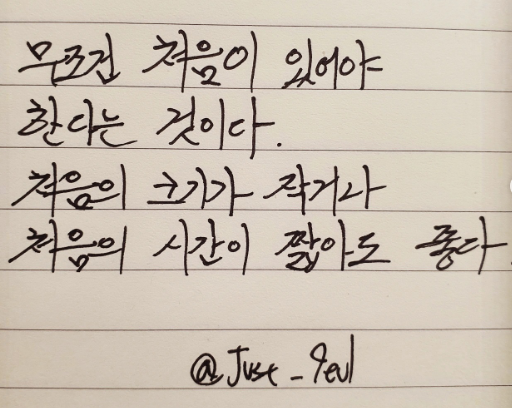 무조건 처음이 있어야
한다는 것이다.
처음의 크기가 작거나
처음의 시간이 짧아도 좋다.
@Just_9eul